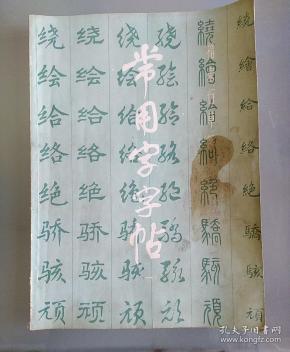 常用字字帖
一
绕绘给络绝骄骇顽
绕绘给络绝骄骇顽
绕绘给络绝骄骇顽
绕绘给络绝骄骇顽
繞繪給絡絕驕駭頑
繞繪給絡絕驕駭頑
孔夫子旧书网